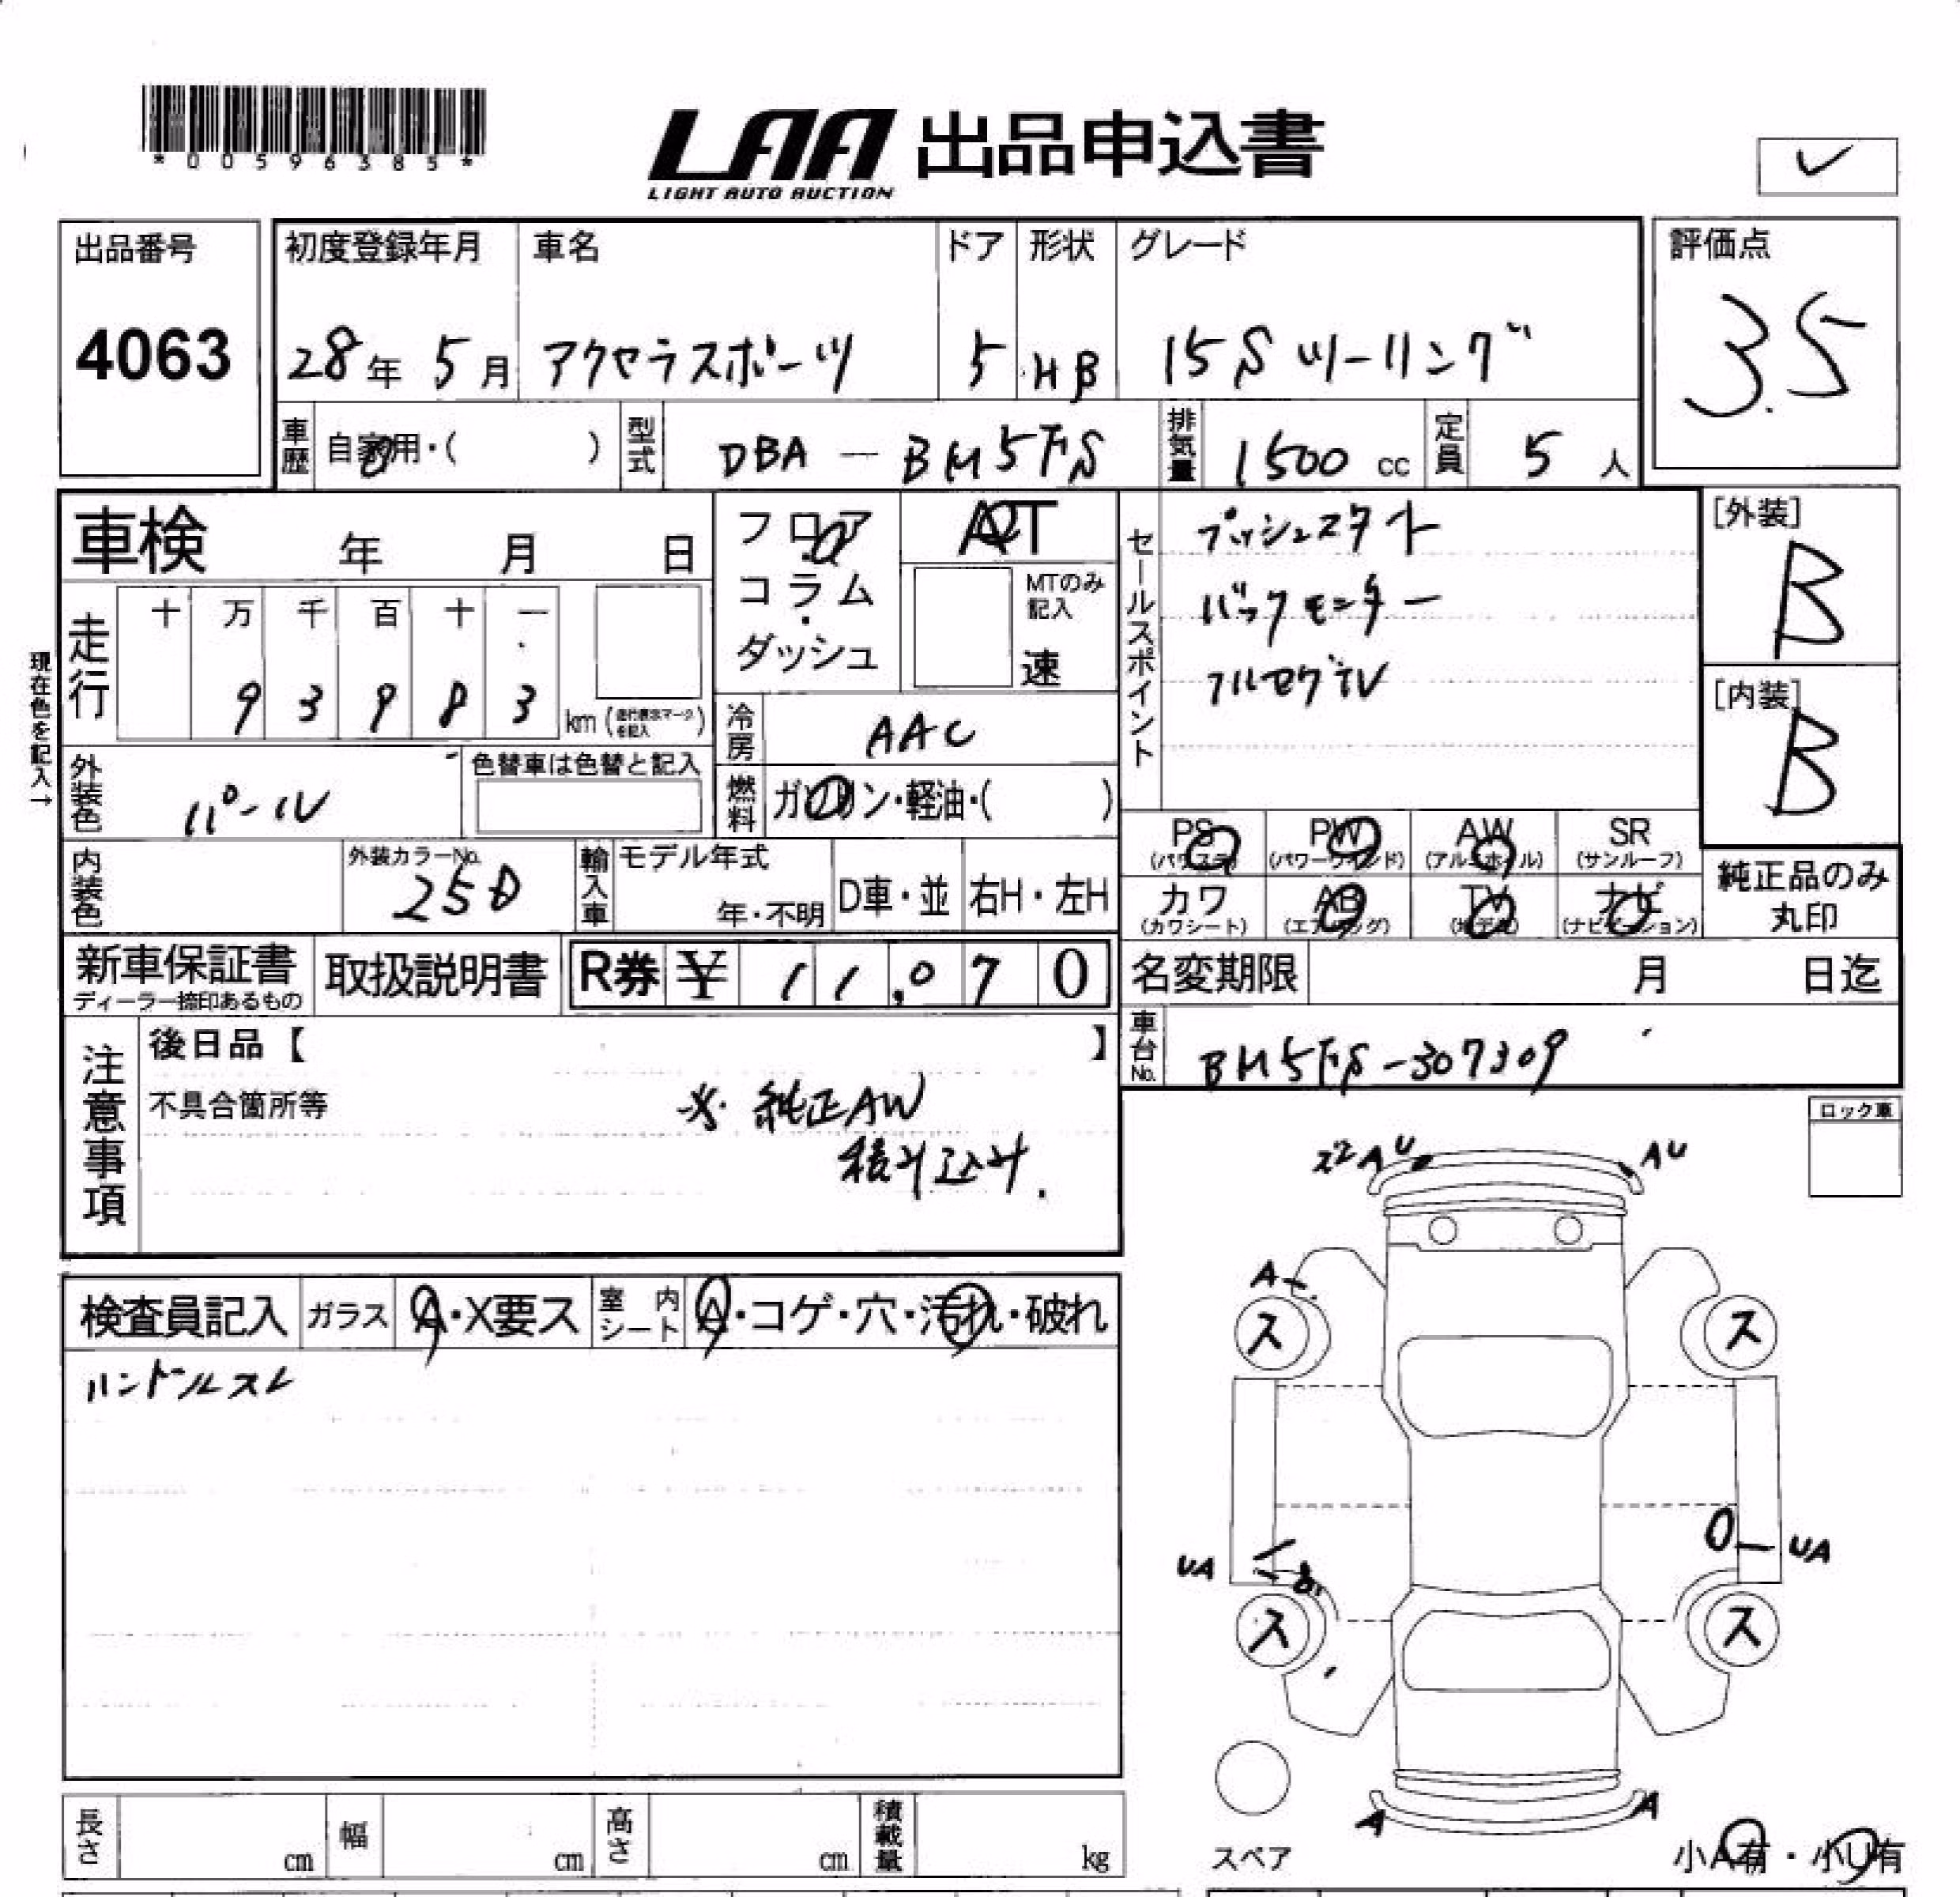 *00596385*
LAA 出品申込書
LIGHT AUTO AUCTION
✓
出品番号
4063
初度登録年月
28年 5月
車名
アクセラスポーツ
ドア
5
形状
HB
グレード
15S ツーリング
評価点
3.5
車歴
自家用・( )
型式
DBA - BM5FS
排気量
1500 cc
定員
5 人
車検 年 月 日
フロア
・
コラム
・
ダッシュ
AT
MTのみ
記入
速
セールスポイント
プッシュスタート
バックモニター
フルセグTV
[外装]
B
[内装]
B
現在色を記入→
走行
十 万 千 百 十 一
9 3 9 8 3
km (走行表示マークを記入)
冷房
AAC
外装色
パール
色替車は色替と記入
燃料
ガソリン・軽油・( )
内装色
外装カラーNo.
25D
輸入車
モデル年式
年・不明
D車・並
右H・左H
PS
(パワステ)
PW
(パワーウインド)
AW
(アルミホイル)
SR
(サンルーフ)
カワ
(カワシート)
AB
(エアバッグ)
TV
(地デジ)
ナビ
(ナビゲーション)
純正品のみ
丸印
新車保証書
ディーラー捺印あるもの
取扱説明書
R券 ¥ 11,070
名変期限 月 日迄
車台No.
BM5FS-307309
注意事項
後日品【 】
不具合箇所等
※ 純正AW
積み込み.
ロック車
検査員記入
ガラス
A・X要ス
室内
シート
A・コゲ・穴・汚れ・破れ
ハンドルスレ
スズAU
AU
A
ス
ス
UA
UA
ス
ス
A
A
スペア
小A有・小U有
長さ
cm
幅
cm
高さ
cm
積載量
kg